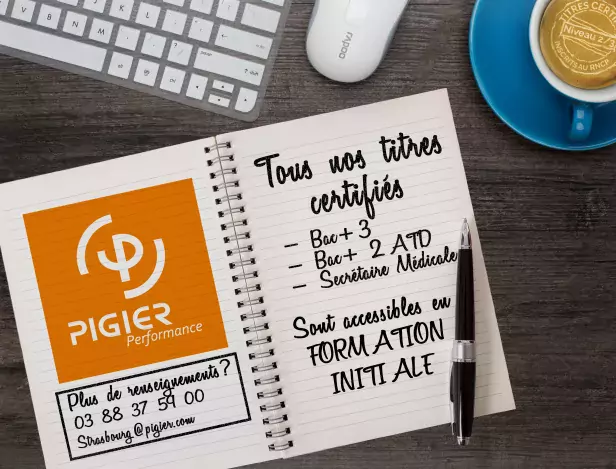 rapoo
TITRES CER
Niveau 2/
AU RNCP
PIGIER
Performance
Plus de renseignements?
03 88 37 59 00
Strasbourg@pigier.com
Tous nos titres
certifiés
- Bac+3
- Bac+ 2 ATD
- Secrétaire Médicale
Sont accessibles en
FORMATION
INITIALE